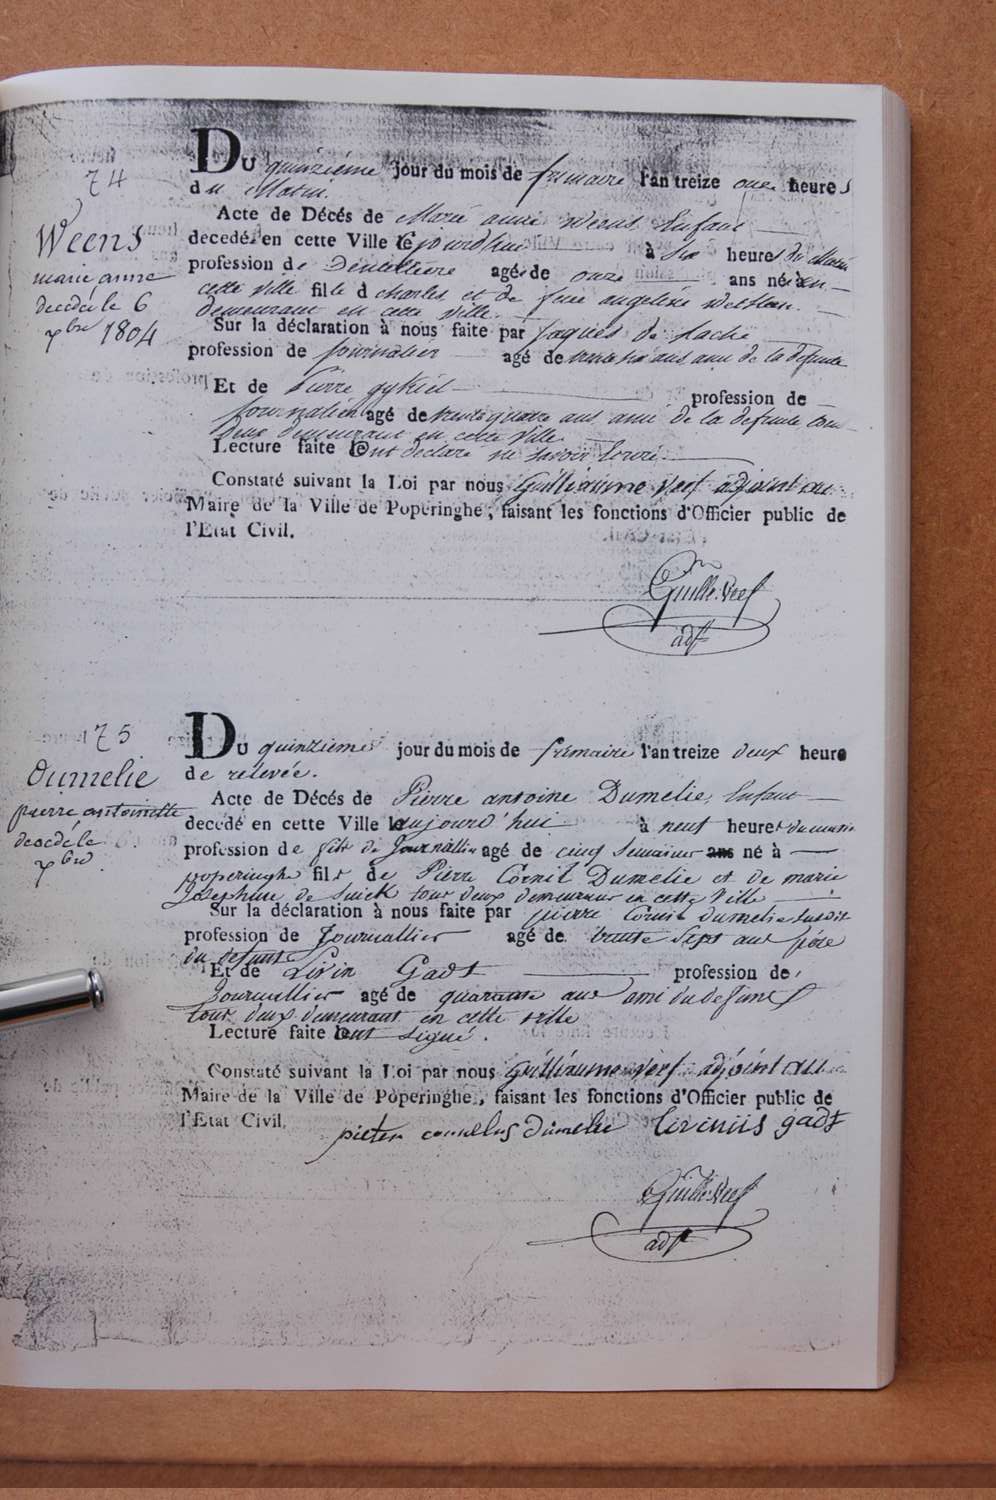 74
Weens
marie anne
decedé le 6
xbre 1804
Du quinzième jour du mois de frimaire l'an treize onze heures
du Matin.
Acte de Décés de Marie anne Weens Enfant
decedé en cette Ville cejourdhui à Six heures du Matin
profession de Dentelliere agé de onze ans né à en
cette ville fille d charles et de feue angeline
demeurant en cette ville.
Sur la déclaration à nous faite par Jaques de
profession de Journalier agé de trente six ans ami de la defunte
Et de Pierre gykiel profession de
Journalier agé de trente quatre ans ami de la defunte tous
deux demeurant en cette ville
Lecture faite ont declaré ne savoir
Constaté suivant la Loi par nous Guilliaume Verf adjoint au
Maire de la Ville de Poperinghe, faisant les fonctions d'Officier public de
l'Etat Civil.
Guille. Verf
adjt
75
Dumelie
pierre antoinette
decedé le 6
xbre
Du quinzieme jour du mois de frimaire l'an treize deux heure
de relevée.
Acte de Décés de Pierre antoine Dumelie, Enfant
decedé en cette Ville aujourd'hui à neuf heures du matin
profession de fils de Journallier agé de cinq Semaines ans né à
poperinghe fils de Pierre Cornil Dumelie et de marie
Josephine de tour deux demeurant en cette Ville
Sur la déclaration à nous faite par pierre Cornil Dumelie susdit
profession de Journallier agé de trente Sept ans père
du defunt
Et de Livin Gadt profession de
Journallier agé de quarante ans ami du defunt
tour deux demeurant en cette ville
Lecture faite ont signé.
Constaté suivant la Loi par nous Guilliaume Verf adjoint au
Maire de la Ville de Poperinghe, faisant les fonctions d'Officier public de
l'Etat Civil.
pieter cornelius dumelie Livinus gadt
Guille. Verf
adjt